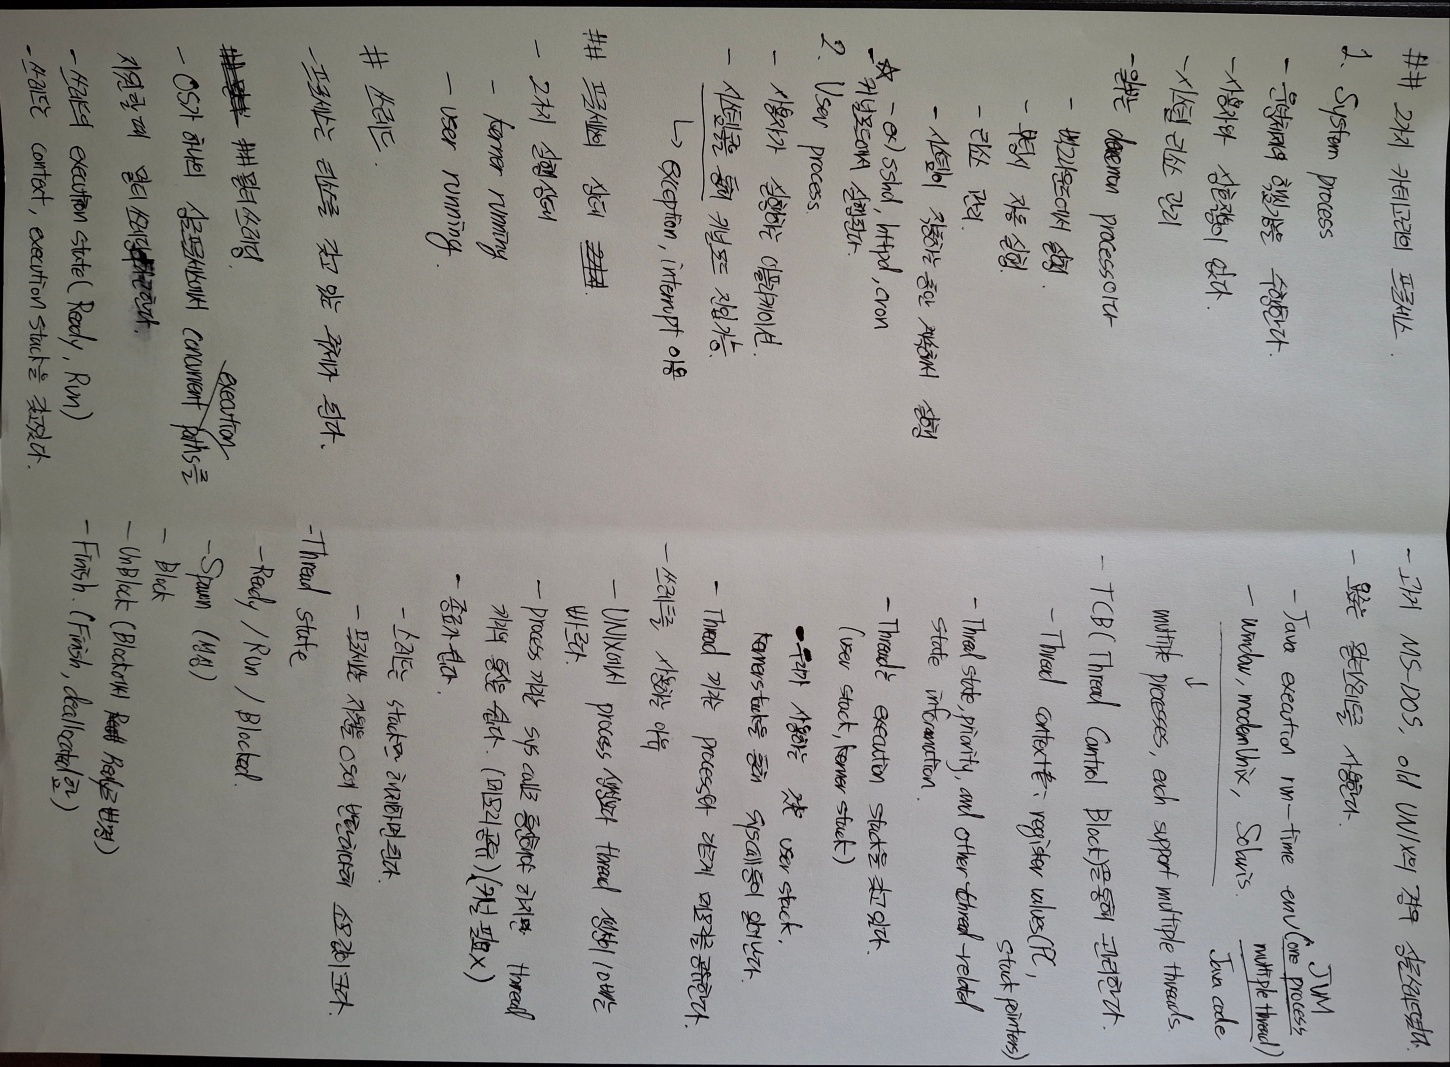 ## 2가지 카테고리의 프로세스
1. System process
- 운영체제의 핵심기능을 수행한다.
- 사용자와 상호작용이 없다.
- 시스템 리소스 관리
- 일부는 daemon process이다
- 백그라운드에서 실행.
- 부팅시 자동 실행.
- 리소스 관리.
- 시스템이 작동하는 동안 계속해서 실행
- ex) sshd, httpd, cron
☆ - 커널모드에서 실행된다.
2. User process.
- 사용자가 실행하는 어플리케이션.
- 시스템콜을 통해 커널모드 진입가능.
↳ exception, interrupt 이용
## 프로세스의 상태
- 2가지 실행상태
- kerner running
- user running.
# 쓰레드.
- 프로세스는 리소스를 갖고 있는 주체가 된다.
## 멀티쓰레딩.
execution
- OS가 하나의 싱글프로세스에서 concurrent paths를
지원할 때 멀티쓰레딩이라고한다.
- 쓰레드의 execution state( Ready, Run)
- 쓰레드는 context, execution stack을 갖고있다.
- 과거 MS-DOS, old UNIX의 경우 싱글스레드였다.
- 요즘은 멀티스레드를 사용한다.
JVM
- Java execution run-time env (one process
multiple thread)
- window, modern Unix, Solaris.
Java code
↓
multiple processes, each support multiple threads.
- TCB( Thread Control Block)을 통해 관리한다.
- Thread context는: register values(PC,
stack pointers)
- Thred state, priority, and other thread-related
state information.
- Thread는 execution stack을 갖고 있다.
(user stack, kerner stack)
• 우리가 사용하는 것은 user stack.
kernerstack을 통해 syscall등이 일어난다.
- Thread 끼리는 process와 다르게 메모리를 공유한다.
- 쓰레드를 사용하는 이유
- UNIX에서 process 생성보다 thread 생성이 10배는
빠르다.
- process 끼리는 sys call로 통신해야 하지만 thread
끼리의 통신은 쉽다. (메모리 공유)(커널 필요x)
- 종료가 쉽다.
- 스레드는 stack만 해제하면 된다.
- 프로세스는 자원을 OS에 반환해야해 소모값이 크다.
- Thread state
- Ready / Run / Blocked.
- Spawn (생성)
- Block
- UnBlock (Block에서 Ready로 변경)
- Finish. (Finish, deallocated 함)